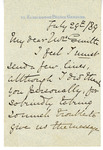 July 29th/89
My dear Mrs Smith
I feel I must
send a few lines,
although I do not know
you personally, for
so kindly taking
so much trouble to
give us the message